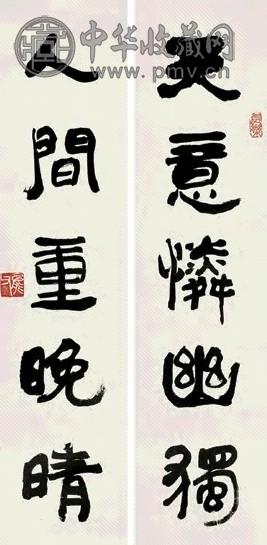 中华收藏网
www.pmv.cn
天意憐幽獨
人間重晚晴